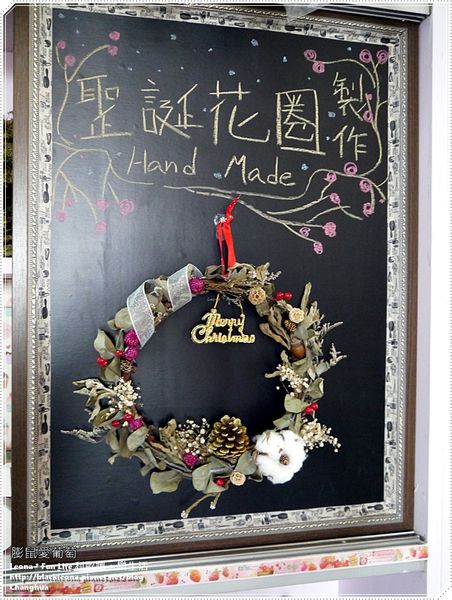 聖誕花圈製作
Hand Made
Merry
Christmas
膨鼠愛葡萄
Leona * Fun Life
http://blackleona.pixnet.net/blog
Changhua